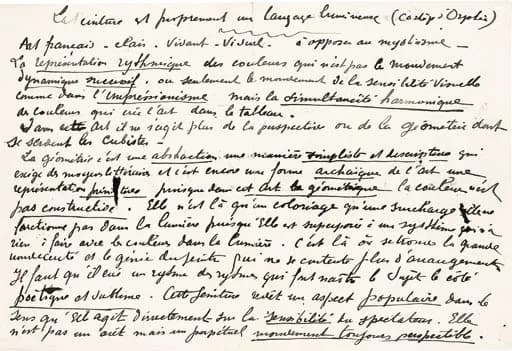 La peinture est proprement un langage lumineux (Cortège d'Orphée)
Art français - clair - Vivant - Visuel - à opposer au mysticisme -
La représentation rythmique des couleurs qui n'est pas le mouvement
dynamique successif. ou seulement le mouvement de la sensibilité Visuelle
comme dans l'impressionisme mais la simultanéité harmonique
de couleurs qui crée l'art dans le tableau.
Dans cette Art il ne s'agit plus de la perspective ou de la géometrie dont
se servent les Cubistes -
La géométrie c'est une abstraction une manière simpliste et descriptive qui
exige des moyens littéraires et c'est encore une forme archaïque de l'art une
représentation primitive puisque dans cet Art la géométrique la couleur n'est
pas constructive. Elle n'est là qu'un coloriage qu'une surcharge Elle ne
fonctionne pas dans la lumière puisqu'Elle est superposée à un système qui n'a
rien à faire avec la couleur dans la lumière. C'est là où se trouve la grande
nouveauté et le génie du peintre qui ne se contente plus d'arrangements
Il faut qu'il crée un rythme des rythmes qui fait naître le Sujet le côté
poétique et sublime. Cette peinture revêt un aspect populaire dans le
sens qu'Elle agit directement sur la sensibilité du spectateur. Elle
n'est pas un arrêt mais un perpétuel mouvement toujours perceptible.